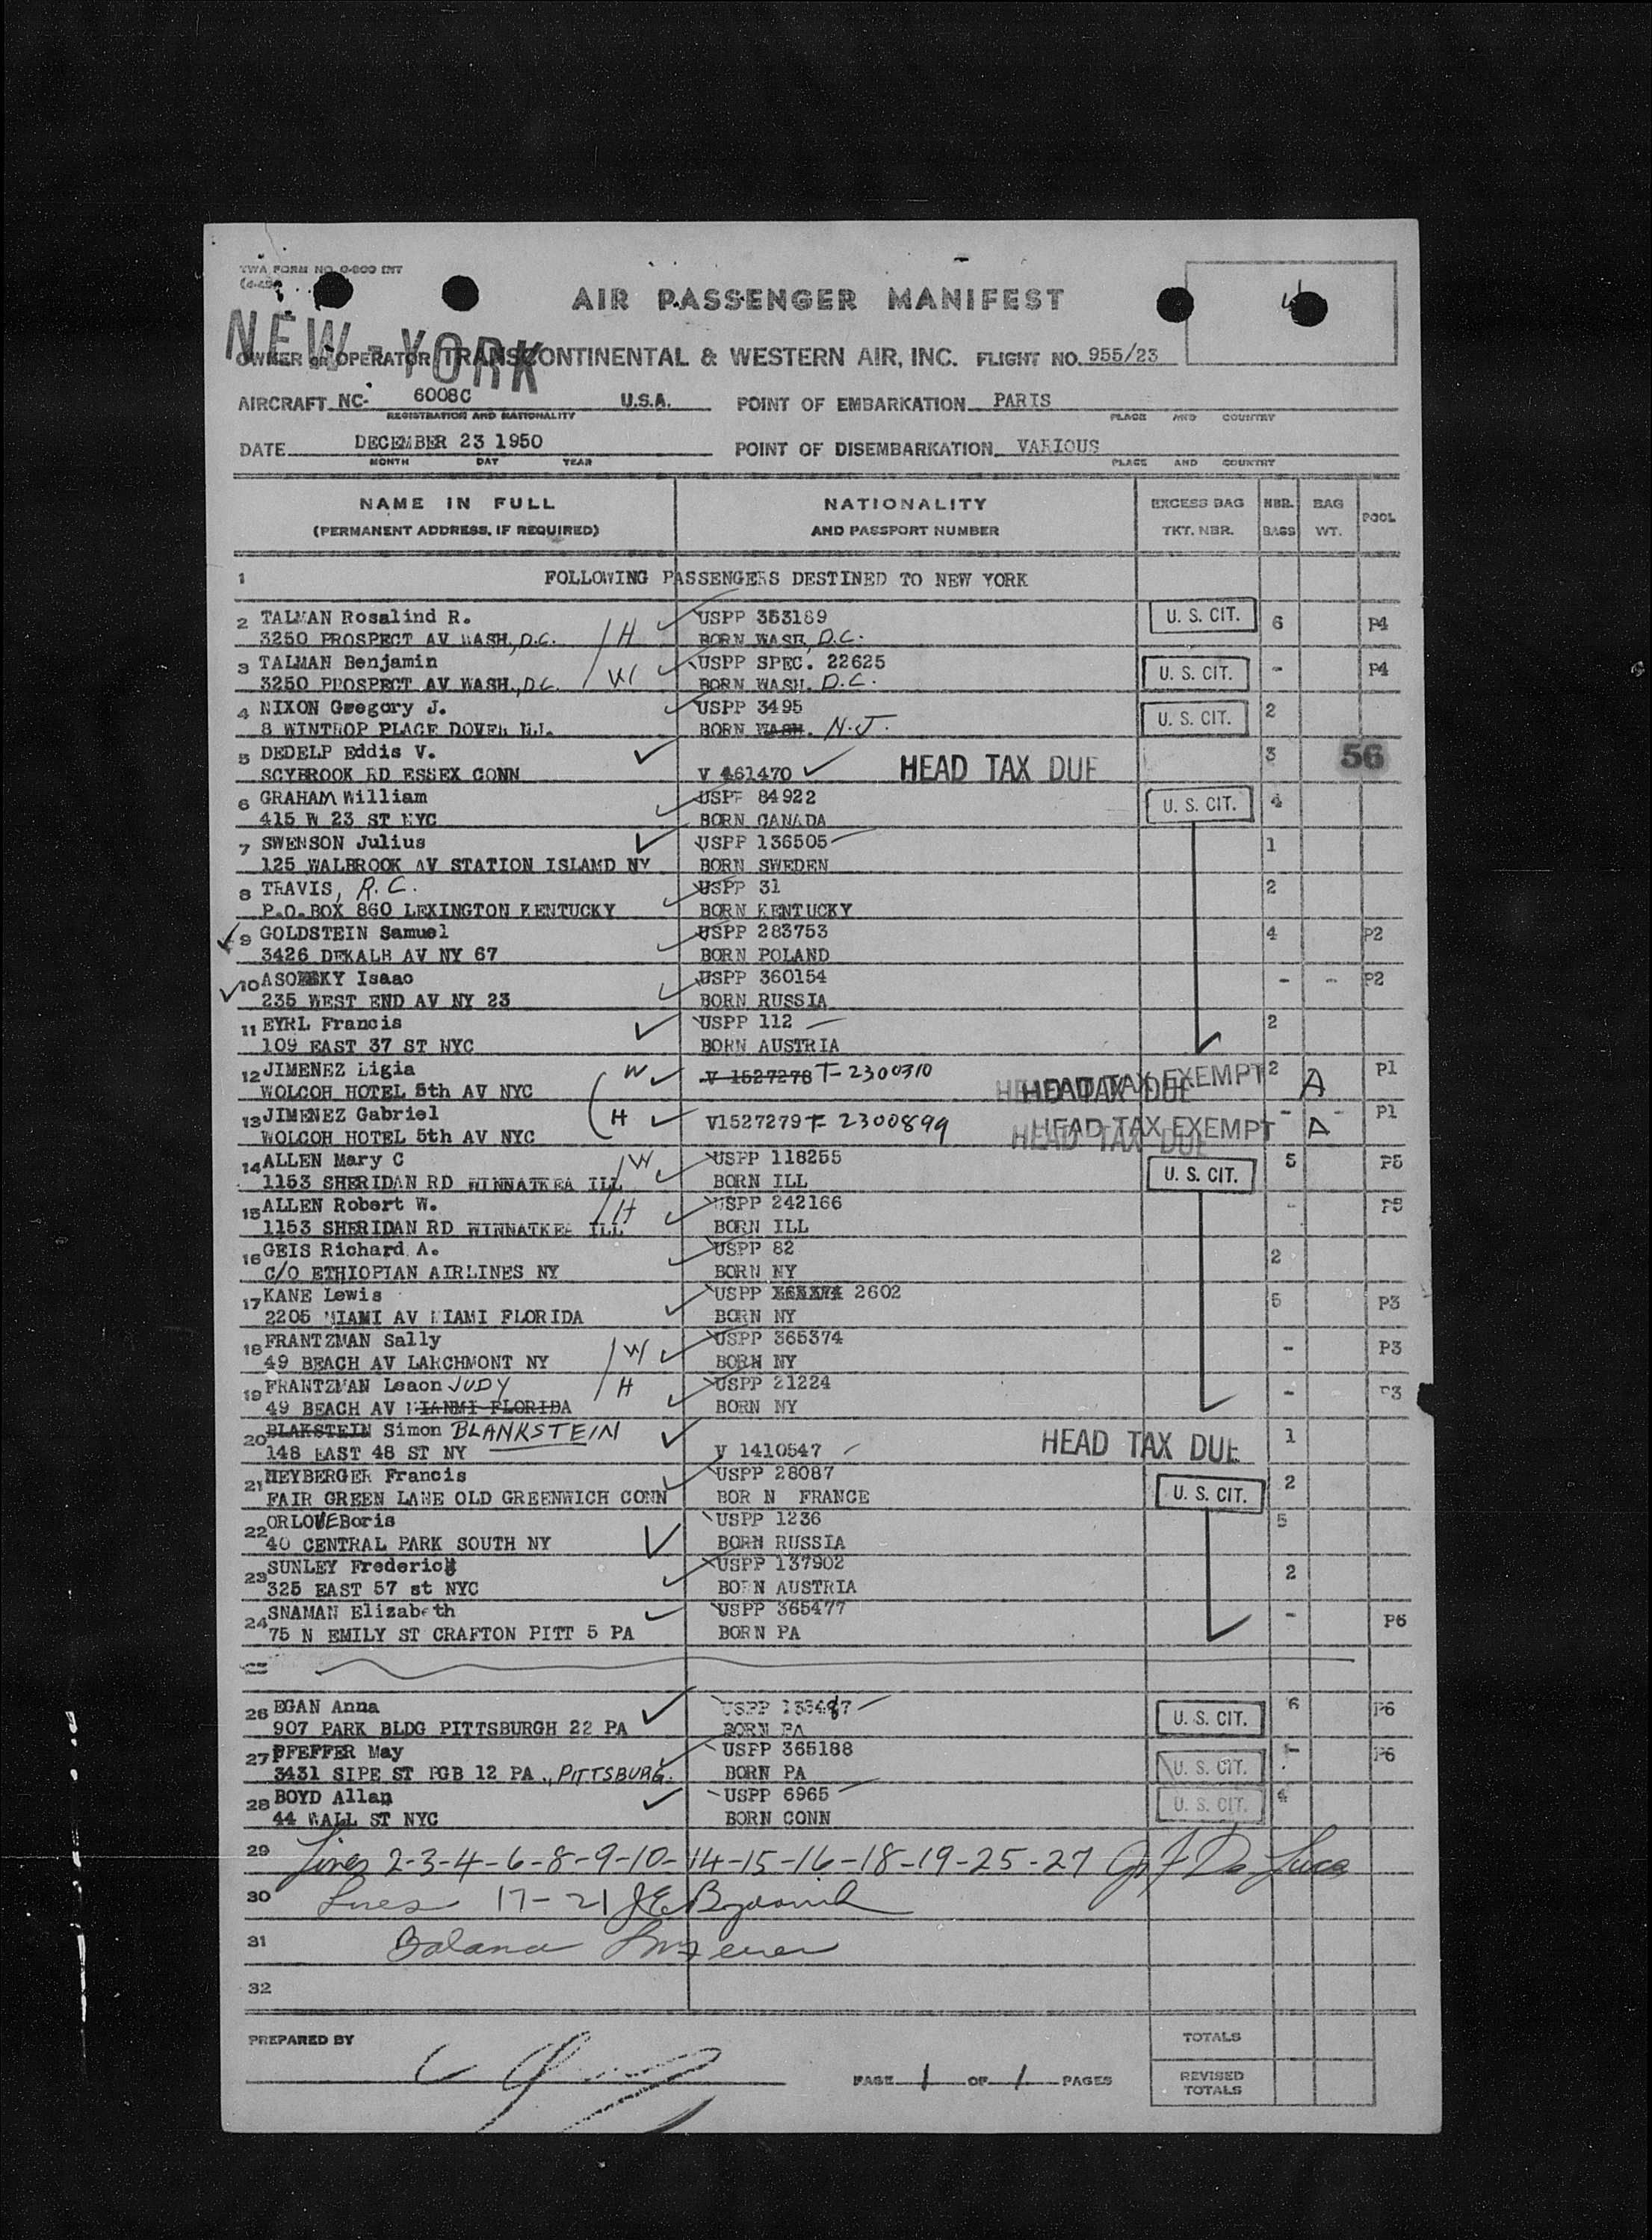 TWA FORM NO. 0-800 INT
AIR PASSENGER MANIFEST
4
NEW-YORK
OWNER OR OPERATOR TRANSCONTINENTAL & WESTERN AIR, INC. FLIGHT NO. 955/23
AIRCRAFT NC- 6008C U.S.A. POINT OF EMBARKATION PARIS
REGISTRATION AND NATIONALITY PLACE AND COUNTRY
DATE DECEMBER 23 1950 POINT OF DISEMBARKATION VARIOUS
MONTH DAY YEAR PLACE AND COUNTRY
NAME IN FULL NATIONALITY EXCESS BAG NBR. BAG POOL
(PERMANENT ADDRESS, IF REQUIRED) AND PASSPORT NUMBER TKT. NBR. BAGS WT.
1 FOLLOWING PASSENGERS DESTINED TO NEW YORK
2 TALMAN Rosalind R. USPP 353189 U. S. CIT. 6 P4
3250 PROSPECT AV WASH, D.C. H BORN WASH, D.C.
3 TALMAN Benjamin USPP SPEC. 22625 U. S. CIT. - P4
3250 PROSPECT AV WASH., D.C. W BORN WASH. D.C.
4 NIXON Gregory J. USPP 3495 U. S. CIT. 2
8 WINTHOP PLACE DOVER BORN WASH. N.J.
5 DEDELP Eddis V. HEAD TAX DUE 3 56
SCYBROOK RD ESSEX CONN V 461470
6 GRAHAM William USPP 84922 U. S. CIT. 4
415 W 23 ST NYC BORN CANADA
7 SWENSON Julius USPP 136505 1
125 WALBROOK AV STATION ISLAND NY BORN SWEDEN
8 TRAVIS, R.C. USPP 31 2
P.O.BOX 860 LEXINGTON KENTUCKY BORN KENTUCKY
9 GOLDSTEIN Samuel USPP 283753 4 P2
3426 DEKALB AV NY 67 BORN POLAND
10 Isaac USPP 360154 - - P2
235 WEST END AV NY 23 BORN RUSSIA
11 EYRL Francis USPP 112 2
109 EAST 37 ST NYC BORN AUSTRIA
12 JIMENEZ Ligia W V 1527278 T-2300310 HEAD TAX DUE HEAD TAX EXEMPT 2 A P1
WOLCOH HOTEL 5th AV NYC
13 JIMENEZ Gabriel H V1527279 T-2300899 HEAD TAX DUE HEAD TAX EXEMPT - A - P1
WOLCOH HOTEL 5th AV NYC
14 ALLEN Mary C W USPP 118255 U. S. CIT. 5 P5
1153 SHERIDAN RD WINNATKEA ILL BORN ILL
15 ALLEN Robert W. H USPP 242166 - P5
1153 SHERIDAN RD WINNATKEA ILL BORN ILL
16 GEIS Richard A. USPP 82 2
C/O ETHIOPIAN AIRLINES NY BORN NY
17 KANE Lewis USPP 2602 5 P3
2205 MIAMI AV MIAMI FLORIDA BORN NY
18 FRANTZMAN Sally W USPP 365374 - P3
49 BEACH AV LARCHMONT NY BORN NY
19 FRANTZMAN Leaon JUDY H USPP 21224 - P3
49 BEACH AV MIANMI FLORIDA BORN NY
20 BLAKSTEIN Simon BLANKSTEIN HEAD TAX DUE 1
148 EAST 48 ST NY V 1410547
21 MEYBERGER Francis USPP 28087 U. S. CIT. 2
FAIR GREEN LANE OLD GREENWICH CONN BOR N FRANCE
22 ORLOVE Boris USPP 1236 5
40 CENTRAL PARK SOUTH NY BORN RUSSIA
23 SUNLEY Frederick USPP 137902 2
325 EAST 57 st NYC BORN AUSTRIA
24 SNAMAN Elizabeth USPP 365477 - P6
75 N EMILY ST CRAFTON PITT 5 PA BORN PA
26 EGAN Anna USPP U. S. CIT. 6 P6
907 PARK BLDG PITTSBURGH 22 PA BORN PA
27 PFEFFER May USPP 365188 U. S. CIT. - P6
3431 SIPE ST PGB 12 PA., PITTSBURG. BORN PA
28 BOYD Allan USPP 6965 U. S. CIT. 4
44 WALL ST NYC BORN CONN
29 Lines 2-3-4-6-8-9-10-14-15-16-18-19-25-27
30 Lines 17-21
31
32
PREPARED BY TOTALS
PAGE 1 OF 1 PAGES REVISED TOTALS